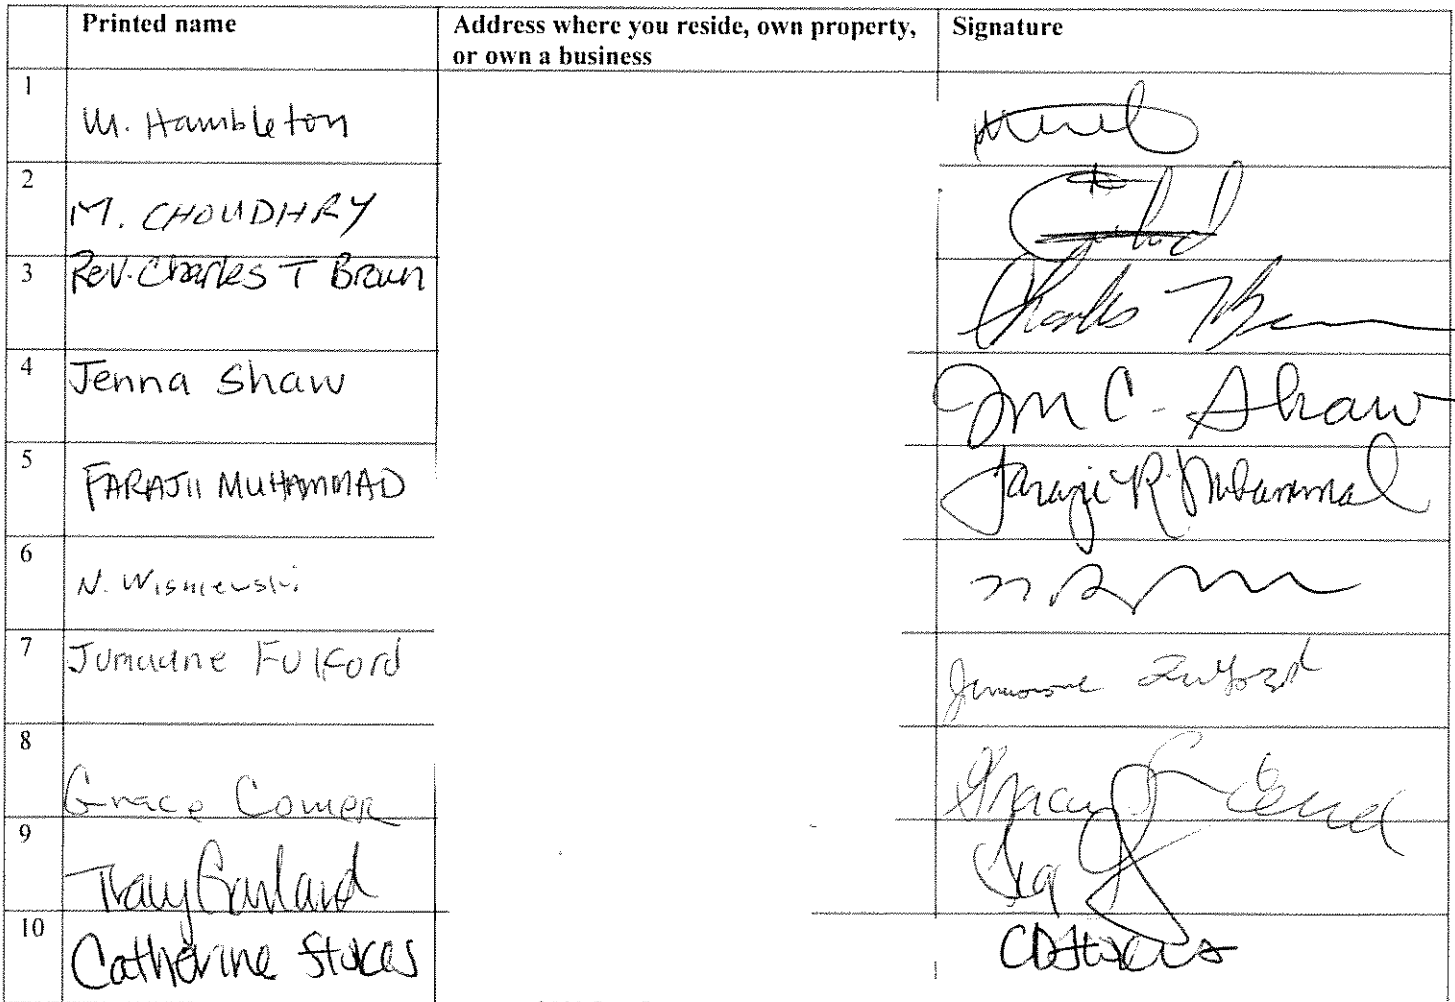 Printed name Address where you reside, own property, or own a business Signature
1 M. Hambleton
2 M. CHOUDHRY
3 Rev. Charles T Braun Charles
4 Jenna Shaw C. Shaw
5 FARAJII MUHAMMAD Farajii R. Muhammad
6 N. Wisniewski
7 Jumaane Fulford Jumaane Fulford
8 Grace Comer
9 Tracy Garland
10 Catherine Stokes CDStokes